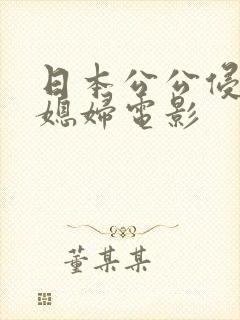 日本公公侵
媳婦電影
董某某